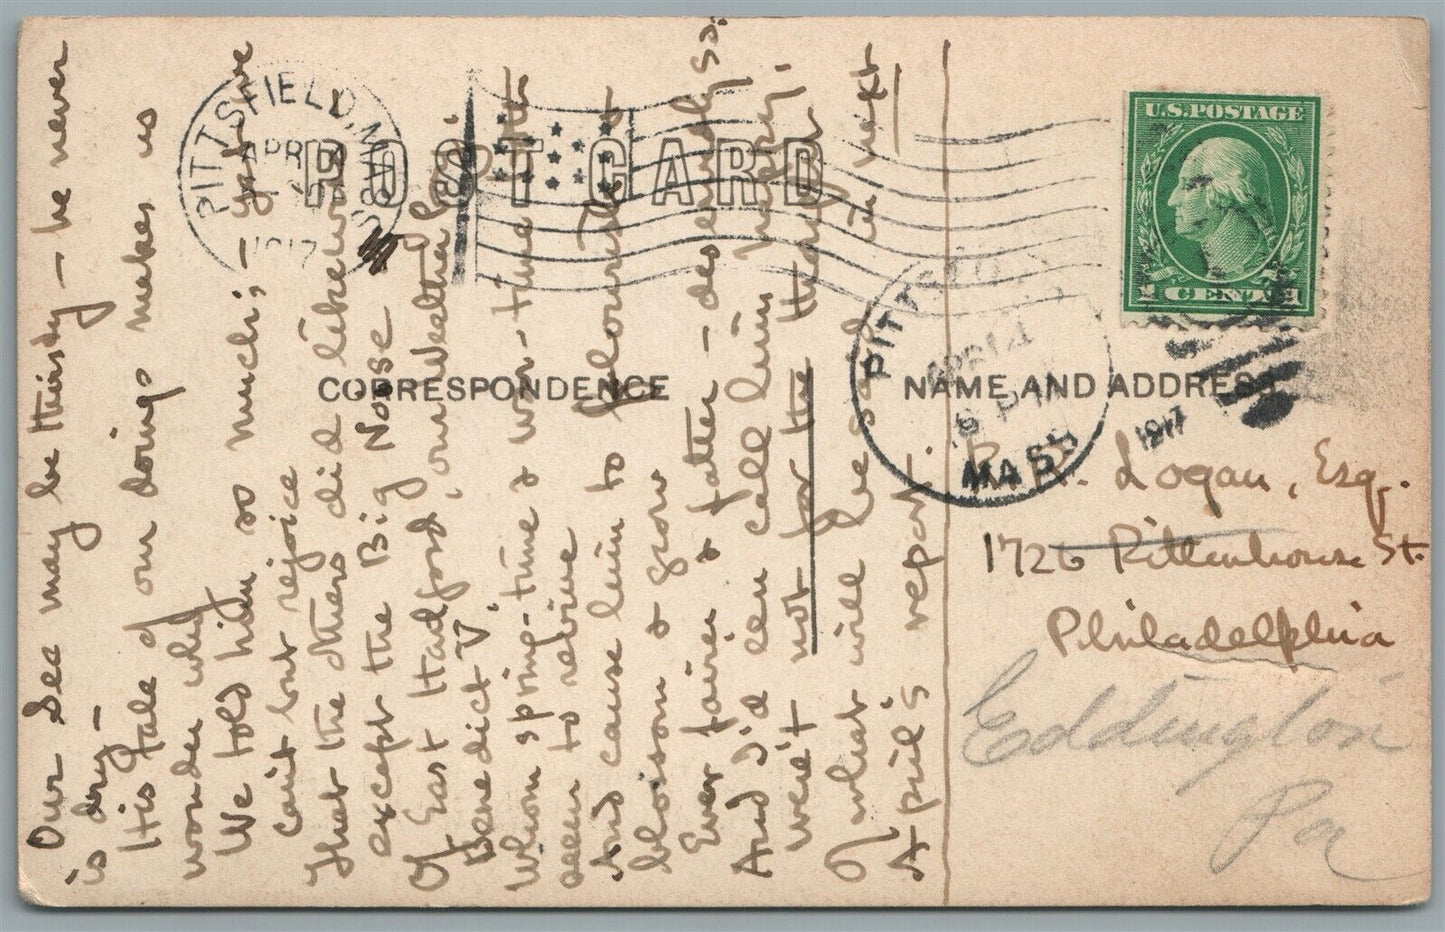 Our Sec may be thirsty – he never
is dry –
His tale of our doings makes us
wonder why
We told him so much; – yet we
can't but rejoice
That the others did likewise
except the Big Noise
Of East Hadford, our Weather
Benedict V.
Whom spring-time & wine-time
seem to revive
And cause him to flourish &
blossom & grow
Ever fairer & fatter – deservedly so.
And I'd e'en call him happy,
were't not for the thought
Of what will be said in next
April's report.
PITTSFIELD, MASS.
APR
1917
POST CARD
CORRESPONDENCE
U.S. POSTAGE
1 CENT 1
PITTSFIELD
APR 14
PM
1917
MASS
NAME AND ADDRESS
R. R. Logan, Esq.
1726 Rittenhouse St.
Philadelphia
Eddington
Pa